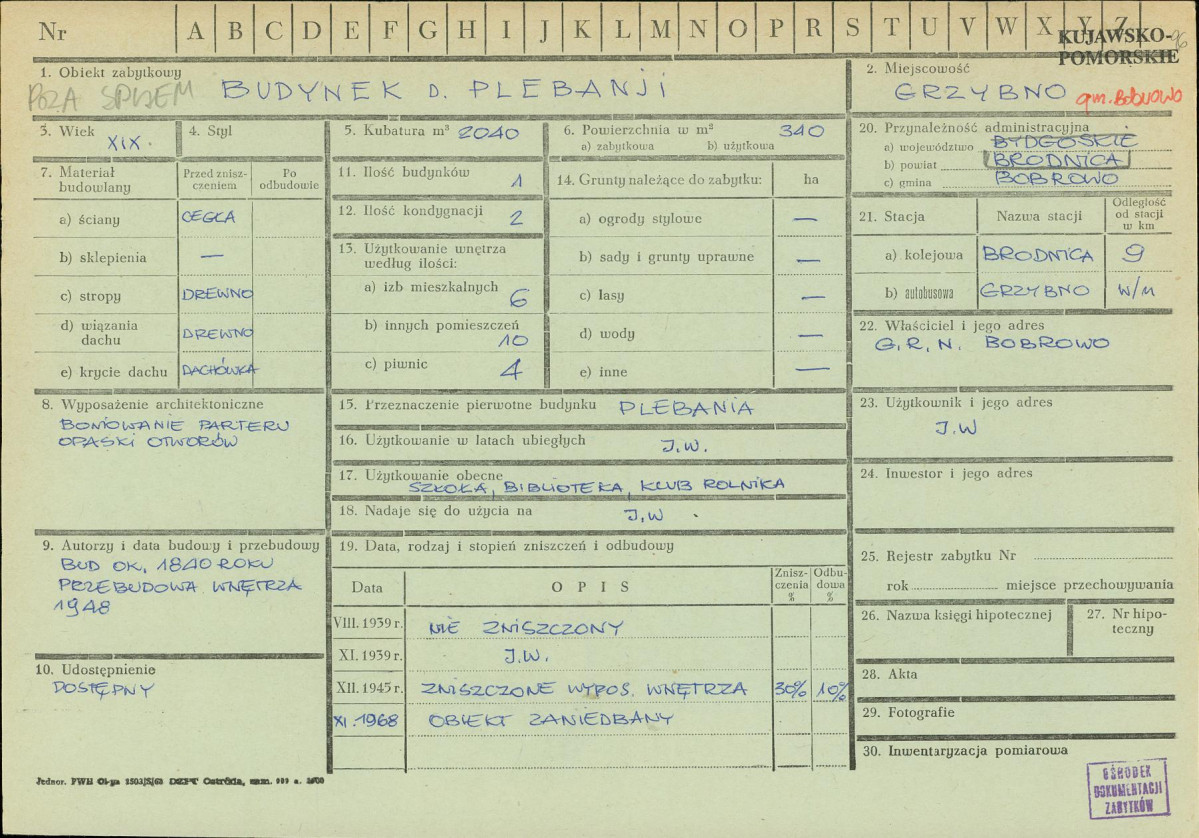 Nr A B C D E F G H I J K L M N O P R S T U V W X Y Z
KUJAWSKO-
POMORSKIE
96
1. Obiekt zabytkowy
POZA SPISEM
BUDYNEK D. PLEBANJI
2. Miejscowość
GRZYBNO gm. Bobrowo
3. Wiek
XIX.
4. Styl
5. Kubatura m³ 2040
6. Powierzchnia w m² 340
a) zabytkowa b) użytkowa
20. Przynależność administracyjna
a) województwo BYDGOSKIE
b) powiat BRODNICA
c) gmina BOBROWO
7. Materiał
budowlany
Przed znisz-
czeniem
Po
odbudowie
a) ściany CEGŁA
b) sklepienia —
c) stropy DREWNO
d) wiązania
dachu DREWNO
e) krycie dachu DACHÓWKA
11. Ilość budynków 1
12. Ilość kondygnacji 2
13. Użytkowanie wnętrza
według ilości:
a) izb mieszkalnych 6
b) innych pomieszczeń
10
c) piwnic 4
14. Grunty należące do zabytku: ha
a) ogrody stylowe —
b) sady i grunty uprawne —
c) lasy —
d) wody —
e) inne —
21. Stacja Nazwa stacji
Odległość
od stacji
w km
a) kolejowa BRODNICA 9
b) autobusowa GRZYBNO W/M
22. Właściciel i jego adres
G.R.N. BOBROWO
8. Wyposażenie architektoniczne
BONIOWANIE PARTERU
OPASKI OTWORÓW
15. Przeznaczenie pierwotne budynku PLEBANIA
16. Użytkowanie w latach ubiegłych J.W.
17. Użytkowanie obecne
SZKOŁA, BIBLIOTEKA, KLUB ROLNIKA
18. Nadaje się do użycia na J.W.
23. Użytkownik i jego adres
J.W
24. Inwestor i jego adres
9. Autorzy i data budowy i przebudowy
BUD OK. 1840 ROKU
PRZEBUDOWA WNĘTRZA
1948
10. Udostępnienie
DOSTĘPNY
19. Data, rodzaj i stopień zniszczeń i odbudowy
Data O P I S
Znisz-
czenia
%
Odbu-
dowa
%
VIII. 1939 r. NIE ZNISZCZONY
XI. 1939 r. J.W.
XII. 1945 r. ZNISZCZONE WYPOS. WNĘTRZA 30% 10%
XI. 1968 OBIEKT ZANIEDBANY
25. Rejestr zabytku Nr
rok miejsce przechowywania
26. Nazwa księgi hipotecznej
27. Nr hipo-
teczny
28. Akta
29. Fotografie
30. Inwentaryzacja pomiarowa
OŚRODEK
DOKUMENTACJI
ZABYTKÓW
Jednor. DZPT Ostróda, zam.